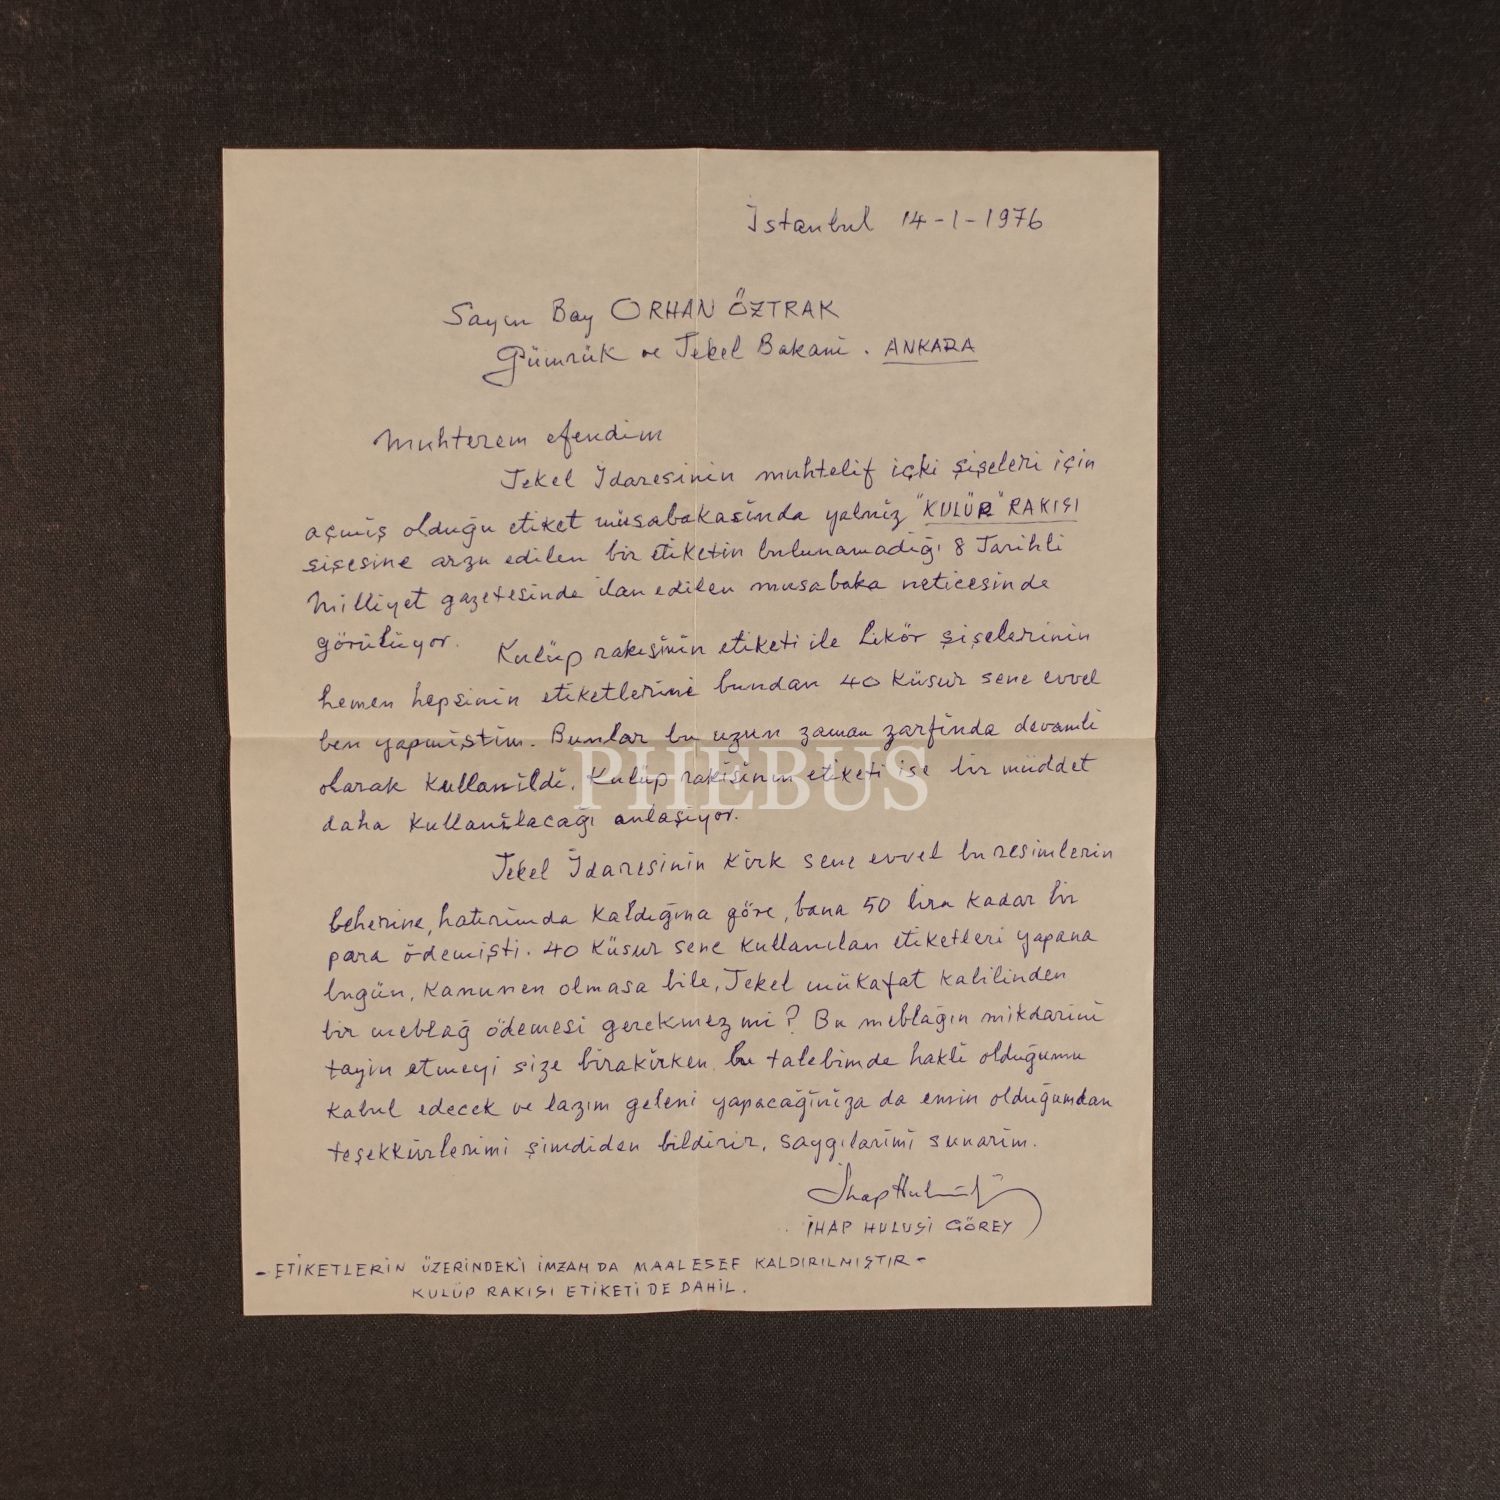 İstanbul 14-1-1976
Sayın Bay ORHAN ÖZTRAK
Gümrük ve Tekel Bakanı. ANKARA
Muhterem efendim
Tekel İdaresinin muhtelif içki şişeleri için
açmış olduğu etiket müsabakasında yalnız "KULÜP" RAKISI
şişesine arzu edilen bir etiketin bulunamadığı 8 Tarihli
Milliyet gazetesinde ilan edilen musabaka neticesinde
görülüyor. Kulüp rakısının etiketi ile Likör şişelerinin
hemen hepsinin etiketlerini bundan 40 küsur sene evvel
ben yapmıştım. Bunlar bu uzun zaman zarfında devamlı
olarak kullanıldı. Kulüp rakısının etiketi ise bir müddet
daha kullanılacağı anlaşıyor.
PHEBUS
Tekel İdaresinin kırk sene evvel bu resimlerin
beherine, hatırımda kaldığına göre, bana 50 lira kadar bir
para ödemişti. 40 küsur sene kullanılan etiketleri yapana
bugün, kanunen olmasa bile, Tekel mükafat kabilinden
bir meblağ ödemesi gerekmez mi? Bu meblağın mikdarını
tayin etmeyi size bırakırken bu talebimde haklı olduğumu
kabul edecek ve lazım geleni yapacağınıza da emin olduğumdan
teşekkürlerimi şimdiden bildirir, saygılarımı sunarım.
İhap Hulusi
İHAP HULUSİ GÖREY
- ETİKETLERİN ÜZERİNDEKİ İMZAM DA MAALESEF KALDIRILMIŞTIR -
KULÜP RAKISI ETİKETİ DE DAHİL.